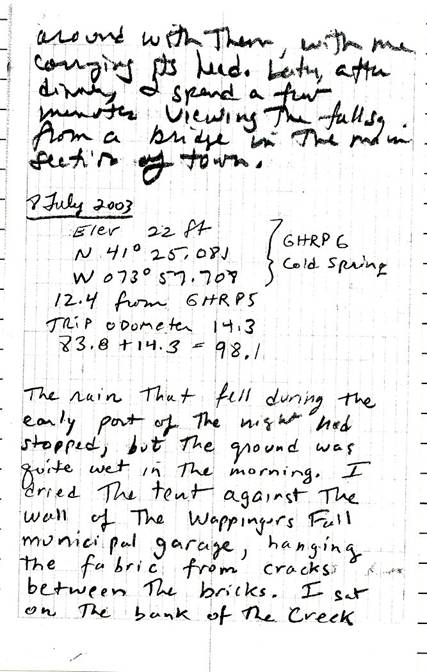 around with them, with me
carrying its lead. Later, after
dinner, I spend a few
minutes viewing the falls
from a bridge in the main
section of town.
8 July 2003
Elev 22 ft
N 41° 25.081
W 073° 57.709
GHRP6
Cold Spring
12.4 from GHRP5
TRIP ODOMETER 14.3
83.8 + 14.3 = 98.1
The rain that fell during the
early part of the night had
stopped, but the ground was
quite wet in the morning. I
dried the tent against the
wall of the Wappingers Fall
municipal garage, hanging
the fabric from cracks
between the bricks. I sat
on the bank of the Creek